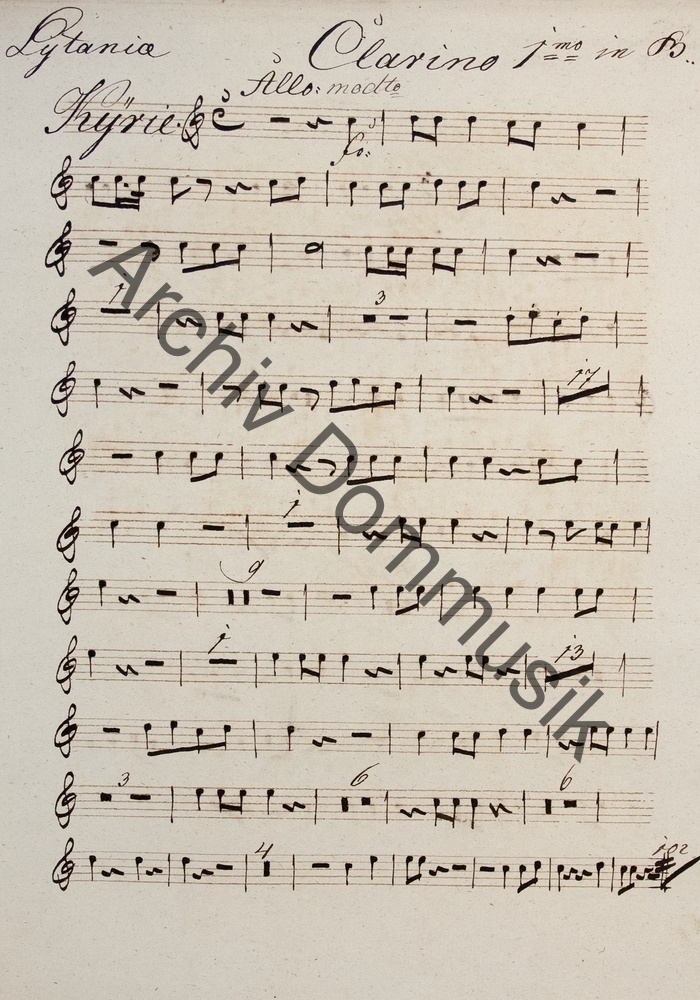 Lytaniæ Clarino 1mo in B.
Allo: modto
Kÿrie.
fo:
1
3
17
1
9
1
13
3 6 6
4 102
Archiv Dommusik